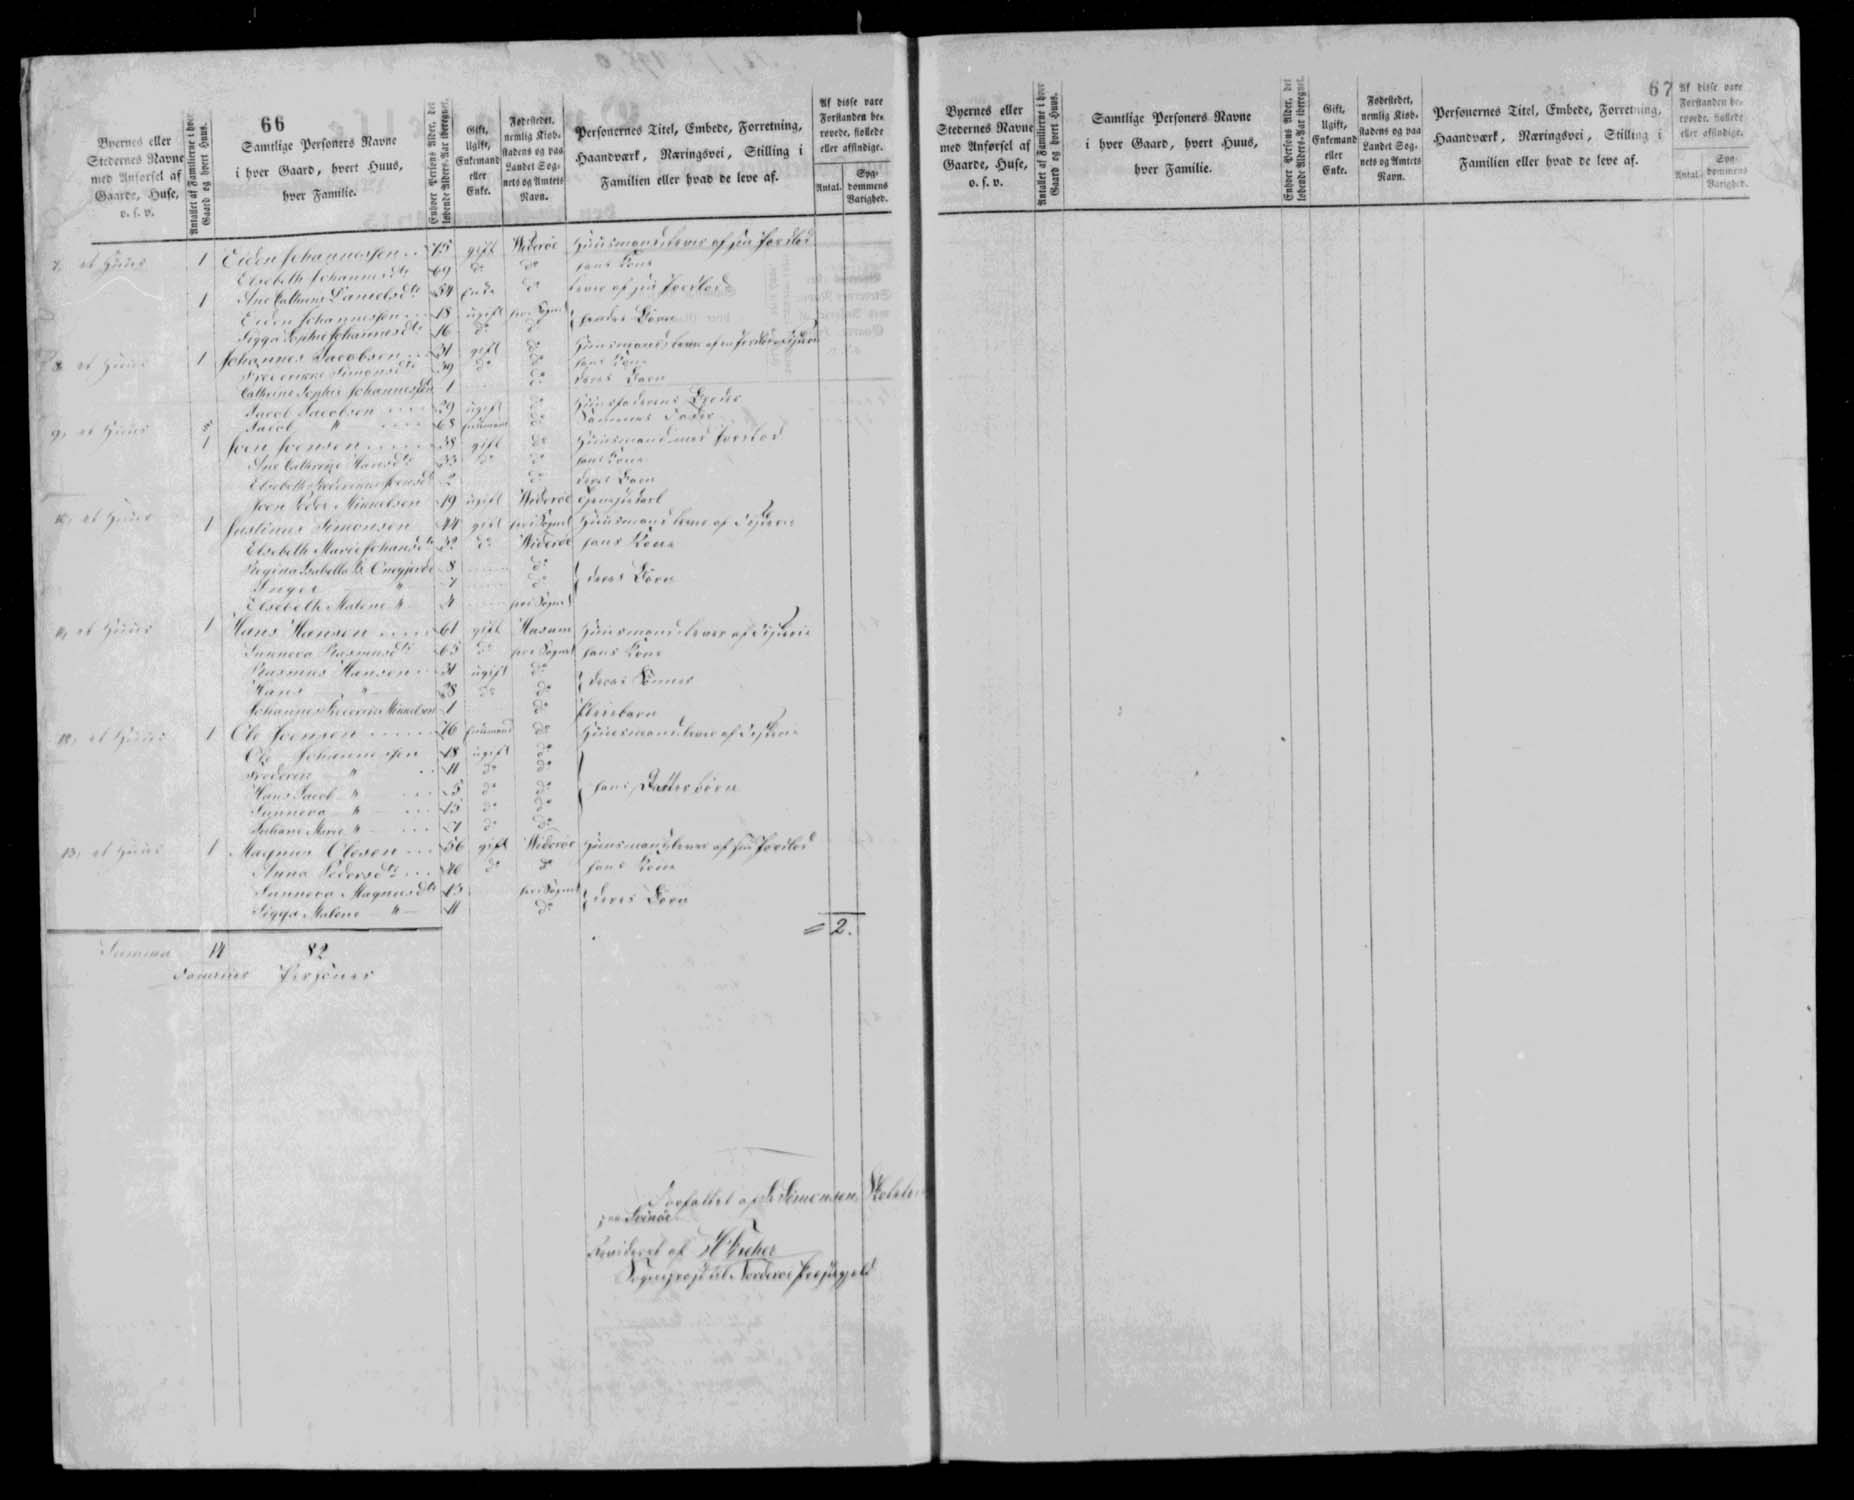 66
Byernes eller Stedernes Navne med Anførsel af Gaarde, Huse, o. s. v.
Antallet af Familierne i hver Gaard og hvert Huus.
Samtlige Personers Navne i hver Gaard, hvert Huus, hver Familie.
Enhver Persons Alder, det løbende Alders-Aar iberegnet.
Gift, Ugift, Enkemand eller Enke.
Fødestedet, nemlig Kiøbstadens og paa Landet Sognets og Amtets Navn.
Personernes Titel, Embede, Forretning, Haandværk, Næringsvei, Stilling i Familien eller hvad de leve af.
Af disse vare Forstanden berøvede, fiollede eller afsindige.
Antal.
Sygdommens Varighed.
7, et Huus 1 Eiden Johannessen 75 gift Widerøe Huusmand, lever af sin Jordlod
Elsebeth Johannesdt 69 do do hans Kone
1 Ane Cathrine Danielsdt 54 Enke do lever af sin Jordlod
Eiden Johannessen 18 ugift her i Sognet hendes Børn
Sigga Sophie Johannesdt 16 do do
8, et Huus 1 Johannes Jacobsen 31 gift do Huusmand, lever af en Jordlod
Frederikke Simonsdt 39 do do hans Kone
Cathrine Sophie Johannesdt 1 do deres Barn
Jacob Jacobsen 29 ugift do Huusfaderens Broder
Jacob " 68 Enkemand do Sammes Fader
9, et Huus 1 Joen Joensen 38 gift do Huusmand med Jordlod
Ane Cathrine Hansdt 33 do do hans Kone
Elsebeth Joensdt 2 do deres Barn
Joen Peder Mikkelsen 19 ugift Widerøe Tjenestekarl
10, et Huus 1 Justinus Simonsen 44 gift her i Sognet Huusmand lever af Fiskerie
Elsebeth Marie Johansdt 32 do Widerøe hans Kone
Regina Isabella 8 do deres Børn
Inger " 7 do
Elsebeth Malene " 4 her i Sognet
11, et Huus 1 Hans Hansen 61 gift Husum Huusmand lever af Fiskerie
Sunneva Rasmusdt 65 do her i Sognet hans Kone
Rasmus Hansen 31 ugift do deres Sønner
Hans " 28 do do
Johannes Frederik Mikkelsen 1 do Pleiebarn
12, et Huus 1 Ole Joensen 76 Enkemand do Huusmand lever af Fiskerie
Ole Johannessen 18 ugift do hans Datterbørn
Frederik " 11 do do
Hans Jacob " 5 do do
Sunneva " 15 do do
Juliane Marie " 7 do do
13, et Huus 1 Magnus Olesen 56 gift Widerøe Huusmand, lever af sin Jordlod
Anna Pedersdt 46 do do hans Kone
Sunneva Magnusdt 13 her i Sognet deres Børn
Sigga Malene " 11 do
= 2.
Summa 14 82
Familier Personer
Forfattet af Simonsen
paa Svinøe
Revideret af
Sognepræst til Norderøe Præstegjeld
67
Byernes eller Stedernes Navne med Anførsel af Gaarde, Huse, o. s. v.
Antallet af Familierne i hver Gaard og hvert Huus.
Samtlige Personers Navne i hver Gaard, hvert Huus, hver Familie.
Enhver Persons Alder, det løbende Alders-Aar iberegnet.
Gift, Ugift, Enkemand eller Enke.
Fødestedet, nemlig Kiøbstadens og paa Landet Sognets og Amtets Navn.
Personernes Titel, Embede, Forretning, Haandværk, Næringsvei, Stilling i Familien eller hvad de leve af.
Af disse vare Forstanden berøvede, fiollede eller afsindige.
Antal.
Sygdommens Varighed.